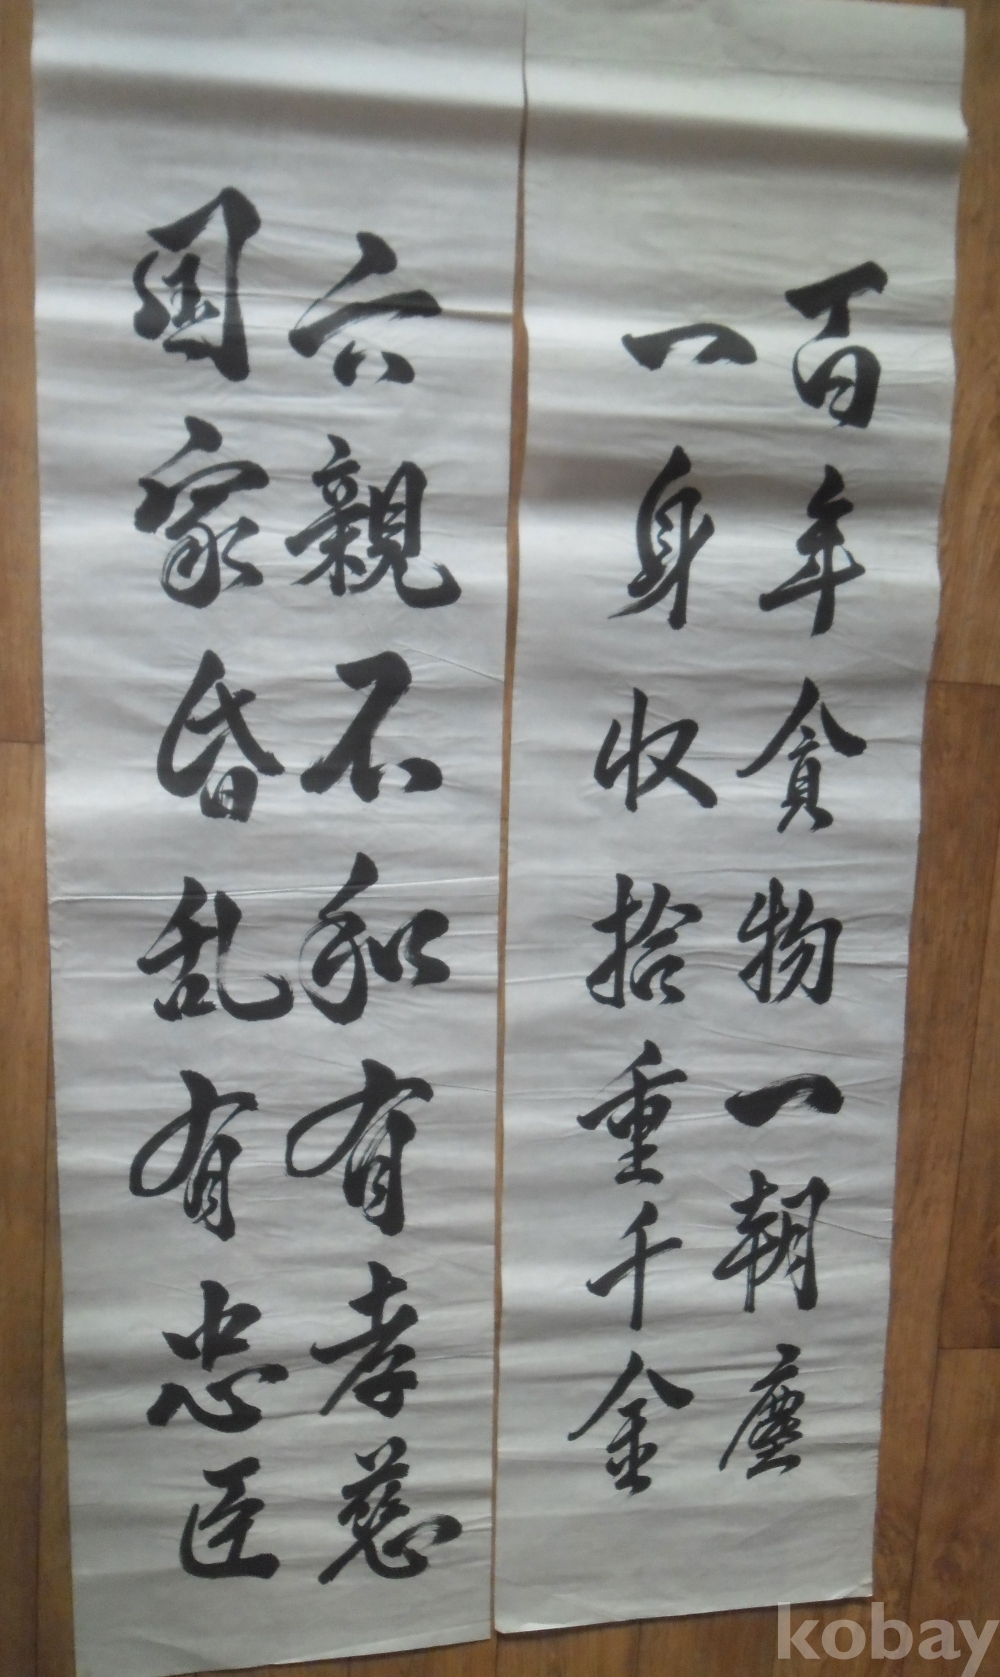 百年貪物一朝塵
一身收拾重千金
六親不和有孝慈
国家昏乱有忠臣
kobay